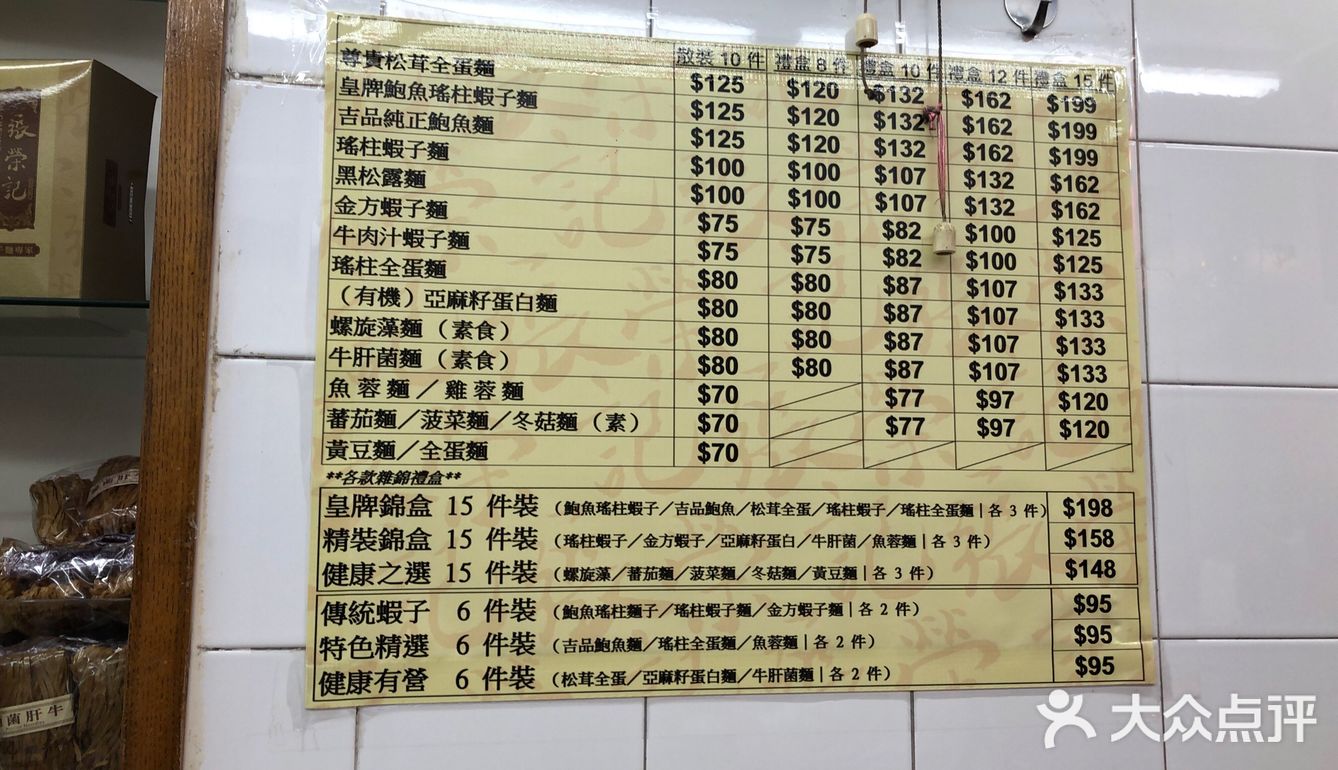 散裝 10 件 禮盒 8 件 禮盒 10 件 禮盒 12 件 禮盒 15 件
尊貴松茸全蛋麵 $125 $120 $132 $162 $199
皇牌鮑魚瑤柱蝦子麵 $125 $120 $132 $162 $199
吉品純正鮑魚麵 $125 $120 $132 $162 $199
瑤柱蝦子麵 $100 $100 $107 $132 $162
黑松露麵 $100 $100 $107 $132 $162
金方蝦子麵 $75 $75 $82 $100 $125
牛肉汁蝦子麵 $75 $75 $82 $100 $125
瑤柱全蛋麵 $80 $80 $87 $107 $133
（有機）亞麻籽蛋白麵 $80 $80 $87 $107 $133
螺旋藻麵（素食） $80 $80 $87 $107 $133
牛肝菌麵（素食） $80 $80 $87 $107 $133
魚蓉麵／雞蓉麵 $70 $77 $97 $120
蕃茄麵／菠菜麵／冬菇麵（素） $70 $77 $97 $120
黃豆麵／全蛋麵 $70
**各款雜錦禮盒**
皇牌錦盒 15 件裝（鮑魚瑤柱蝦子／吉品鮑魚／松茸全蛋／瑤柱蝦子／瑤柱全蛋麵｜各 3 件） $198
精裝錦盒 15 件裝（瑤柱蝦子／金方蝦子／亞麻籽蛋白／牛肝菌／魚蓉麵｜各 3 件） $158
健康之選 15 件裝（螺旋藻／蕃茄麵／菠菜麵／冬菇麵／黃豆麵｜各 3 件） $148
傳統蝦子 6 件裝（鮑魚瑤柱麵子／瑤柱蝦子麵／金方蝦子麵｜各 2 件） $95
特色精選 6 件裝（吉品鮑魚麵／瑤柱全蛋麵／魚蓉麵｜各 2 件） $95
健康有營 6 件裝（松茸全蛋／亞麻籽蛋白麵／牛肝菌麵｜各 2 件） $95
張榮記
菌肝牛
大众点评